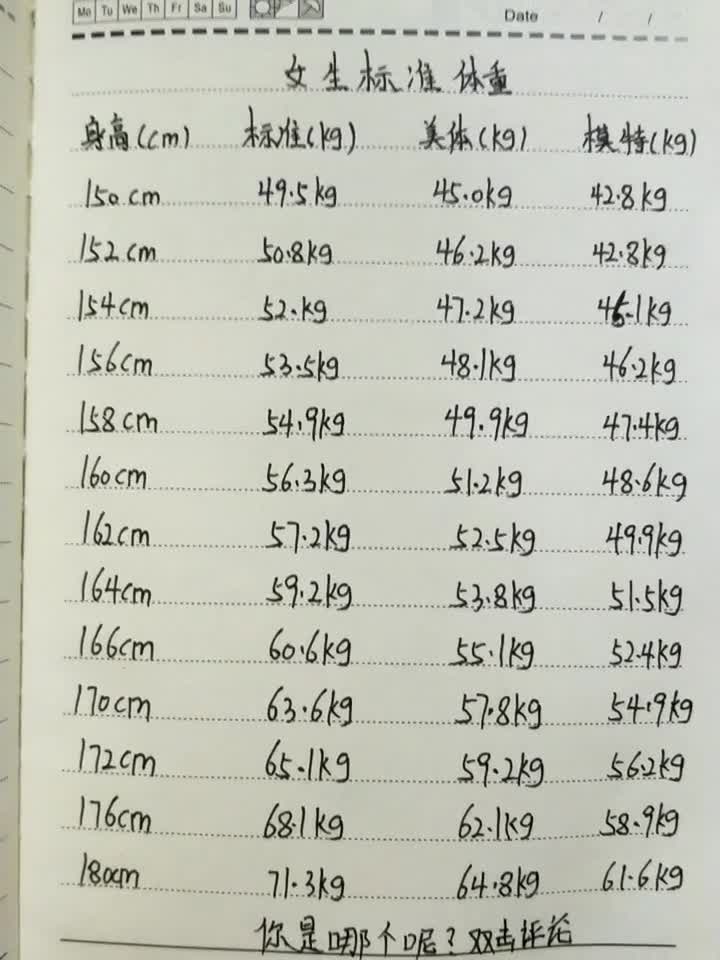 Mo Tu We Th Fr Sa Su
Date / /
女生标准体重
身高(cm) 标准(kg) 美体(kg) 模特(kg)
150cm 49.5kg 45.0kg 42.8kg
152cm 50.8kg 46.2kg 42.8kg
154cm 52.kg 47.2kg 45.1kg
156cm 53.5kg 48.1kg 46.2kg
158cm 54.9kg 49.9kg 47.4kg
160cm 56.3kg 51.2kg 48.6kg
162cm 57.2kg 52.5kg 49.9kg
164cm 59.2kg 53.8kg 51.5kg
166cm 60.6kg 55.1kg 52.4kg
170cm 63.6kg 57.8kg 54.9kg
172cm 65.1kg 59.2kg 56.2kg
176cm 68.1kg 62.1kg 58.9kg
180cm 71.3kg 64.8kg 61.6kg
你是哪个呢?双击评论